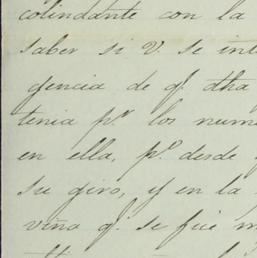 colindante con la
saber si V. se in
gencia de q.e dha
tenia p.r los num
en ella, p.o desde
su giro, y en la
viña q.e se fué m